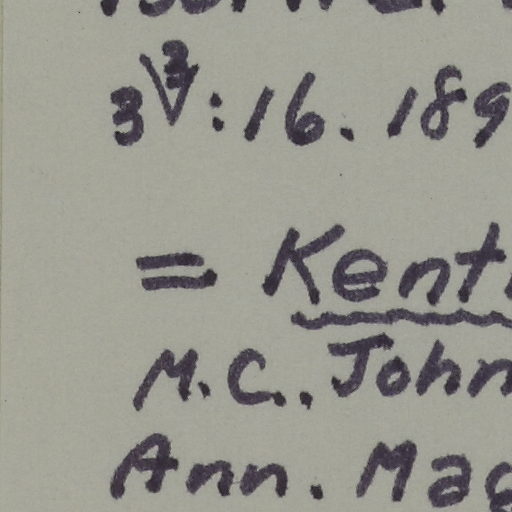 3 : 16. 189
= Kent
M. C. John
Ann. Mag